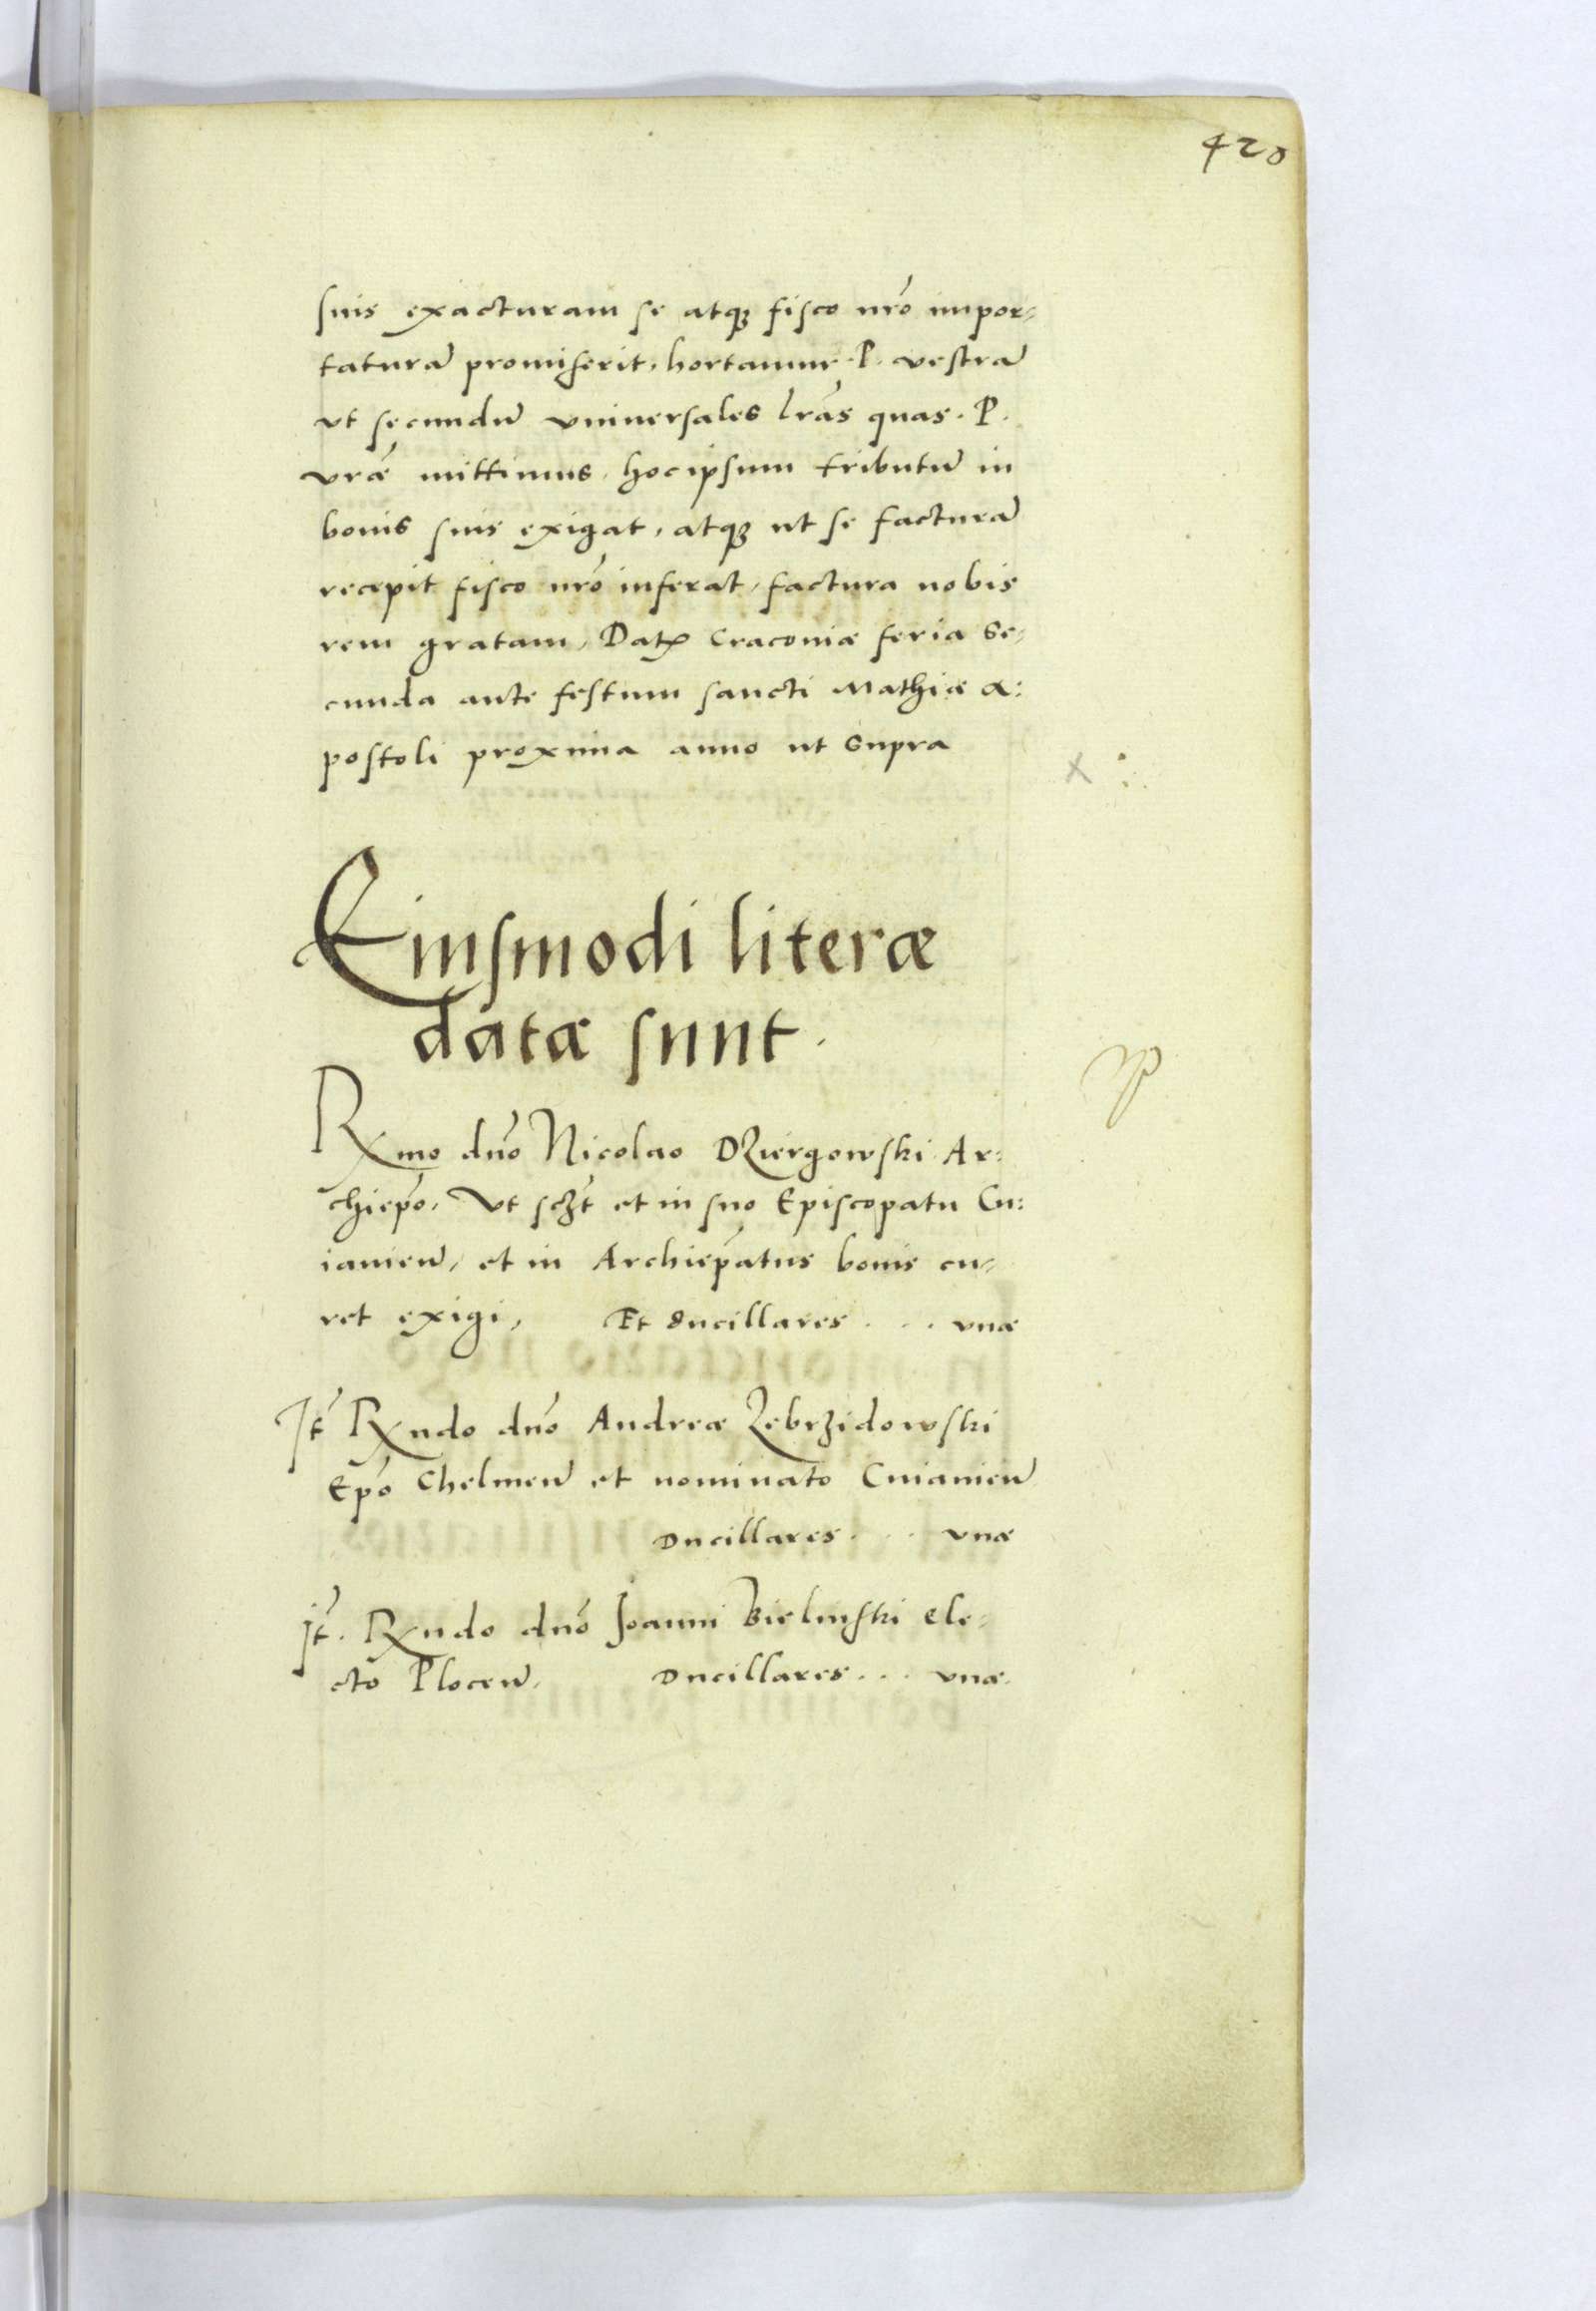 420
suis exacturam se atqꝫ fisco nr̃o impor-
taturã promiserit, hortamur. P. vestrã
vt secundũ vniuersales lr̃as quas. P.
vrã mittimus, hoc ipsum tributũ in
bonis suis exigat, atqꝫ ut se facturã
recepit fisco nr̃o inferat, factura nobis
rem gratam, Datꝭ Craconiæ feria se-
cunda ante festum sancti Mathiæ A:
postoli proxima anno ut supra
Eiusmodi literæ
datæ sunt.
Rmo dño Nicolao Dziergowski Ar:
chiep̃o, Vt sczt̃ et in suo Episcopatu Cu:
iauieñ, et in Archiep̃atus bonis cu-
ret exigi, Et ducillares . . . vnæ
It̃ Rndo dño Andreæ Zebrzidowski
Ep̃o Chelmeñ et nominato Cuiauieñ
Ducillares . . . vnæ
It̃. Rndo dño Joanni Bielinski ele-
cto Ploceñ, Ducillares . . . vnæ.